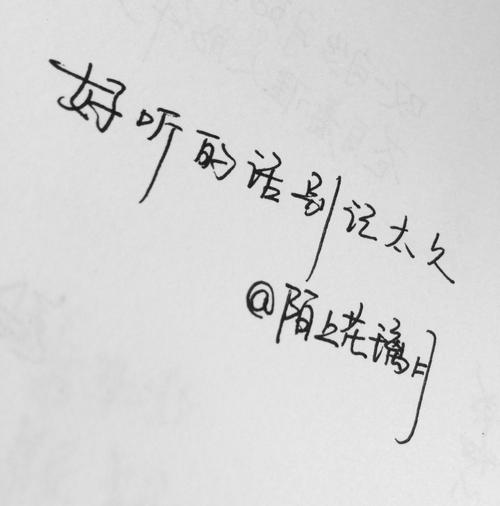 好听的话别记太久
@陌上花